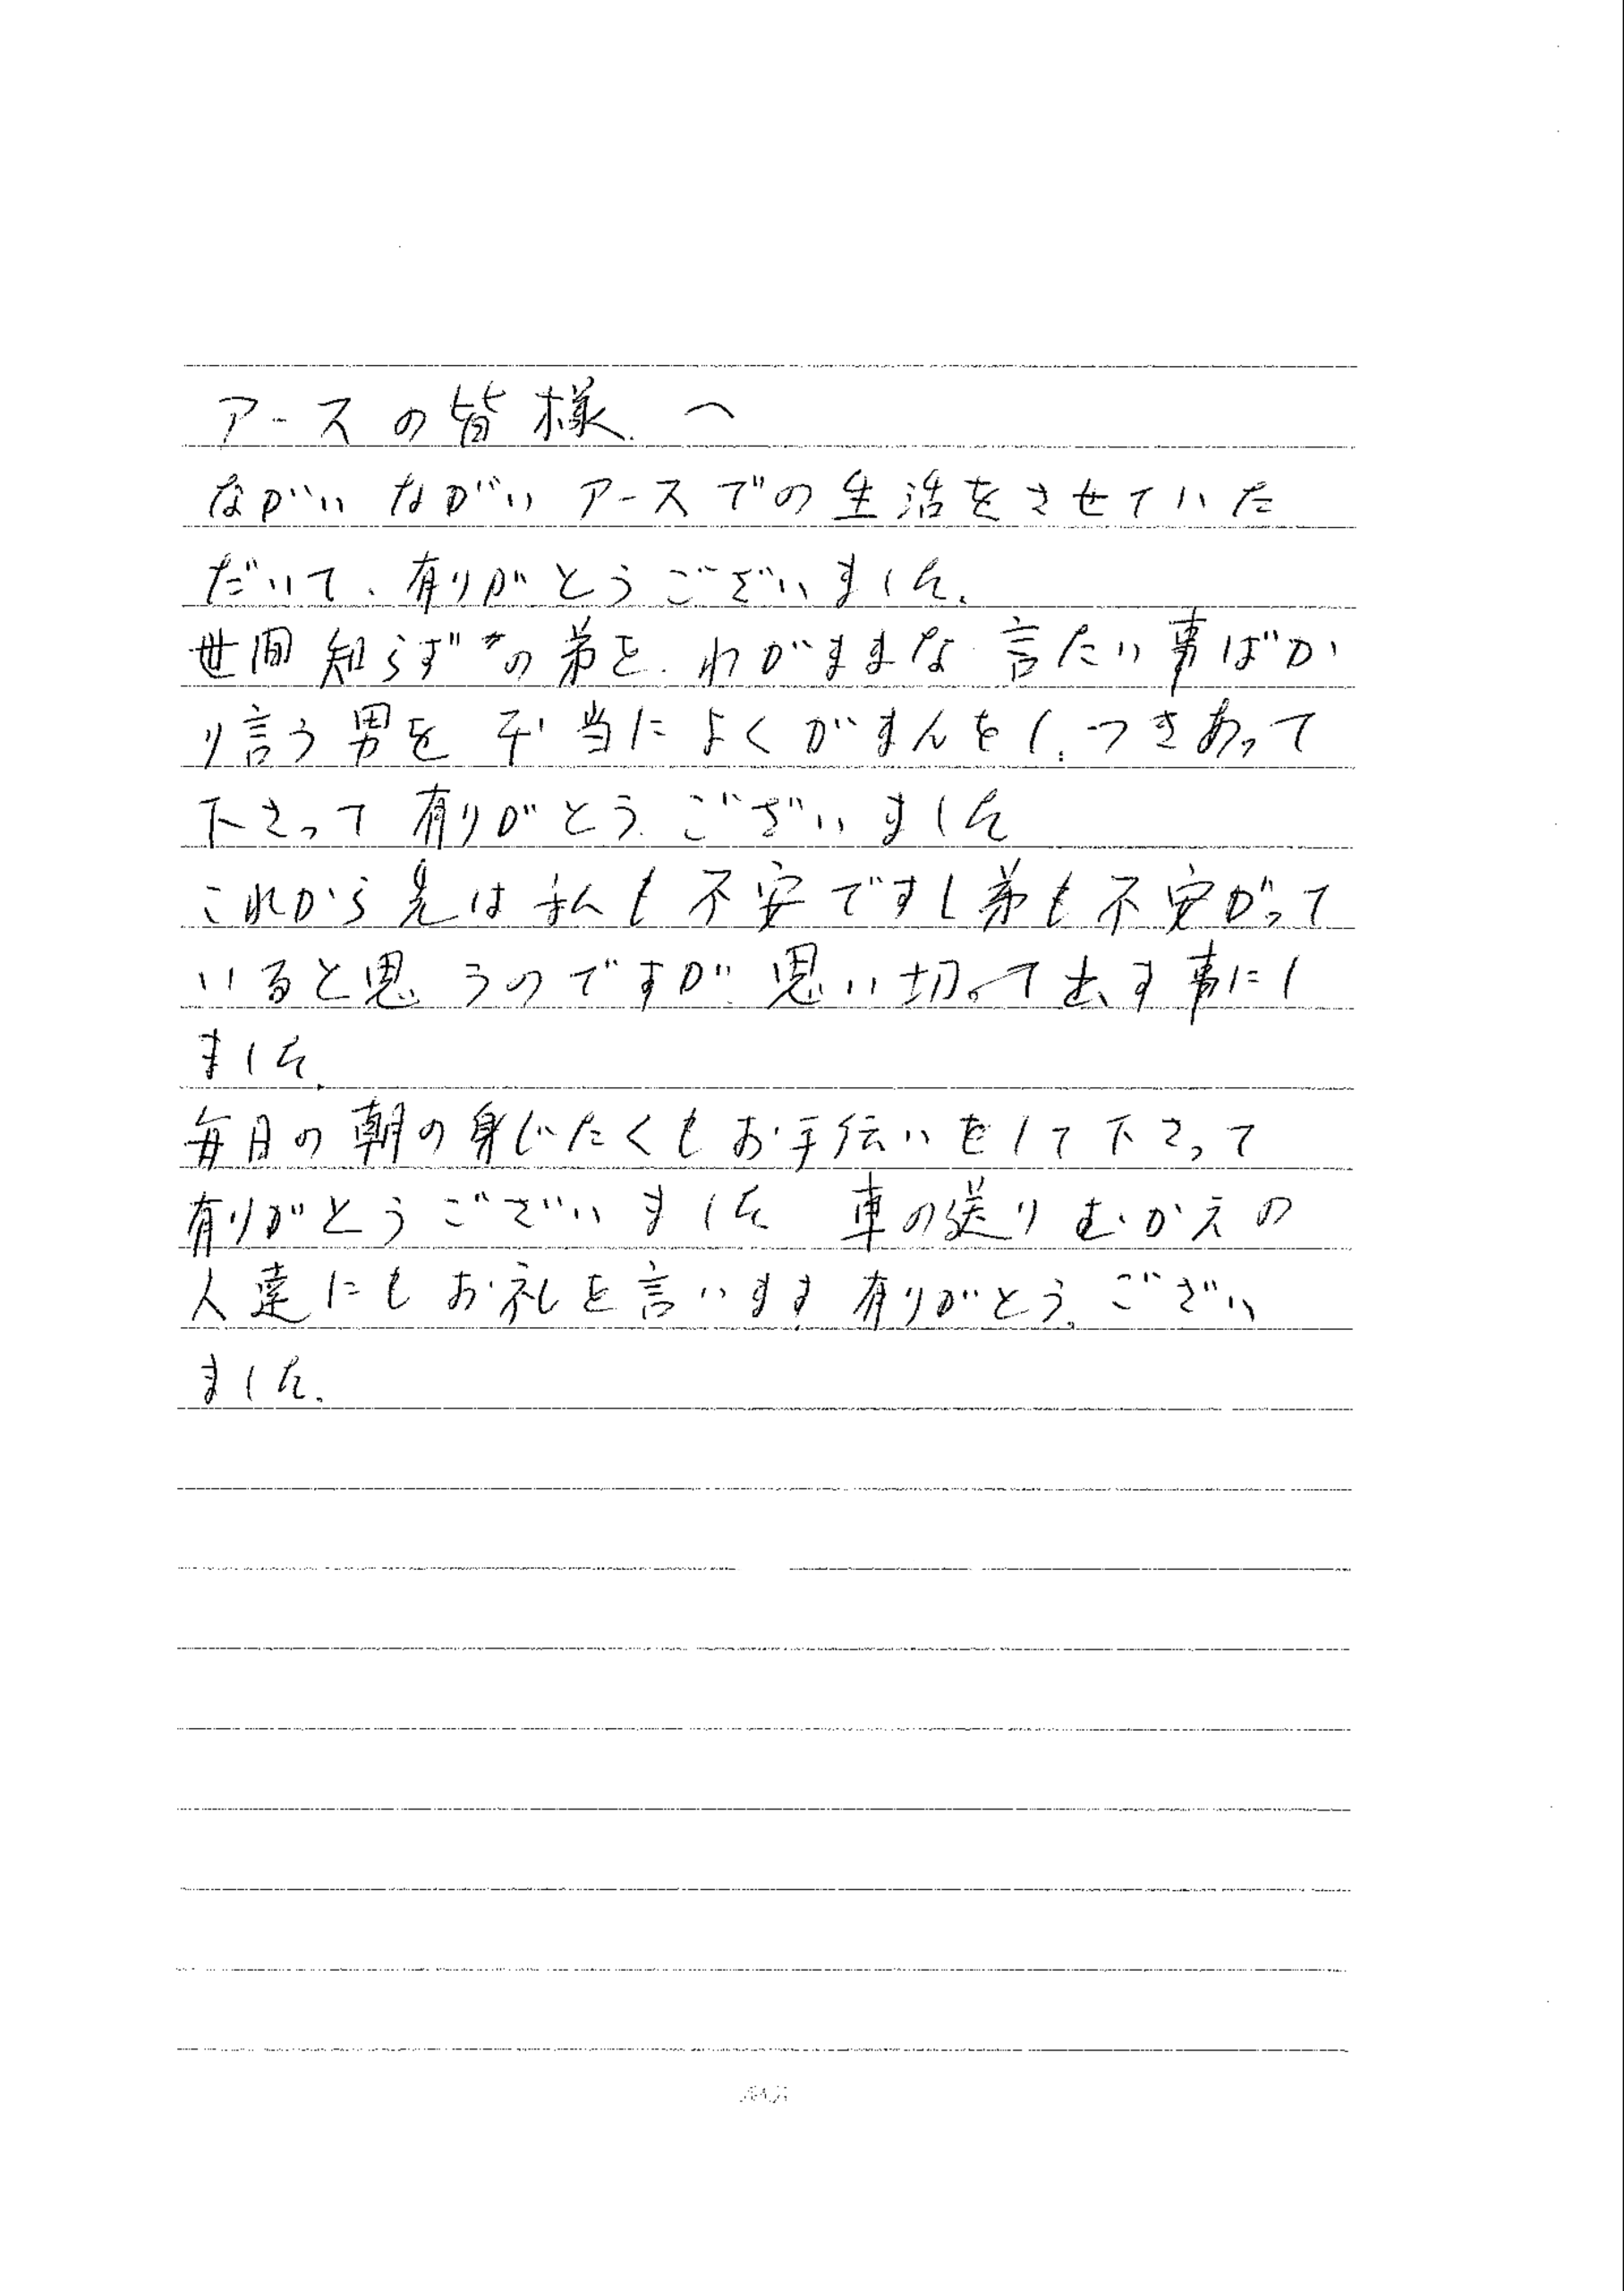 アースの皆様へ
ながいながいアースでの生活をさせていた
だいて、有りがとうございました。
世間知らずの弟を、わがままな言たい事ばか
り言う男を本当によくがまんをし、つきあって
下さって有りがとうございました
これから先は私も不安ですし弟も不安がって
いると思うのですが、思い切って出す事にし
ました。
毎日の朝の身じたくもお手伝いをして下さって
有りがとうございました 車の送りむかえの
人達にもお礼を言います 有りがとうござい
ました。